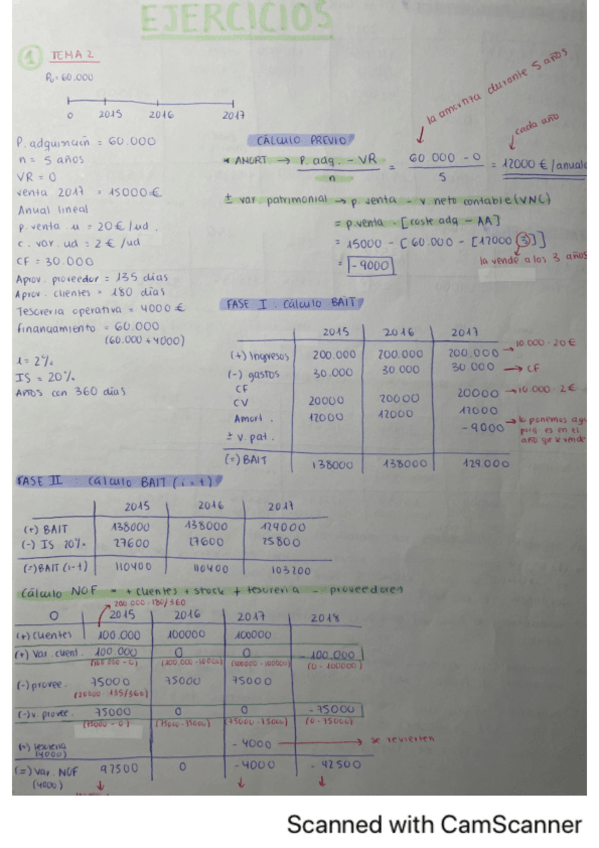 EJERCICIOS
1 TEMA 2
P₀ = 60.000
0 2015 2016 2017
la amortita durante 5 años
cada año
P. adquisición = 60.000
n = 5 años
VR = 0
venta 2017 = 15000€
Anual lineal
p. venta u = 20€/ud.
c. var. ud = 2€/ud
CF = 30.000
Aprov. proveedor = 135 días
Aprov. clientes = 180 días
Tesorería operativa = 4000€
financiamiento = 60.000
(60.000 + 4000)
i = 2%
IS = 20%
Años con 360 días
CÁLCULO PREVIO
* AMORT → P. adq. - VR / n = 60 000 - 0 / 5 = 12000 €/anuales
± var patrimonial → p. venta - v. neto contable (VNC)
= p.venta - [coste adq - AA]
= 15000 - [60.000 - [12000 · 3]]
= -9000
la vende a los 3 años
FASE I: Cálculo BAIT
2015 2016 2017
(+) Ingresos 200.000 200.000 200.000 → 10.000 · 20€
(-) gastos 30.000 30 000 30 000 → CF
CF
CV 20000 20000 20000 → 10.000 · 2€
Amort. 12000 12000 12000
± v. pat. -9000
(=) BAIT 138000 138000 129.000
FASE II: Cálculo BAIT (1-t)
2015 2016 2017
(+) BAIT 138000 138000 129000
(-) IS 20% 27600 27600 25800
(=) BAIT (1-t) 110400 110400 103200
Cálculo NOF = + clientes + stock + tesorería - proveedores
200.000 · 180/360
0 2015 2016 2017 2018
(+) Clientes 100.000 100000 100000
(+) Var. client. 100.000 0 0 -100.000
(100.000 - 100000) (100000 - 100000) (0 - 100000)
(-) provee. 75000 75000 75000
(-) v. provee. 75000 0 0 -75000
(75000 - 0) (75000 - 75000) (75000 - 75000) (0 - 75000)
(+) tesorería -4000 → se revierten
(4000)
(=) Var. NOF 97500 0 -4000 -92500
(4000)
Scanned with CamScanner